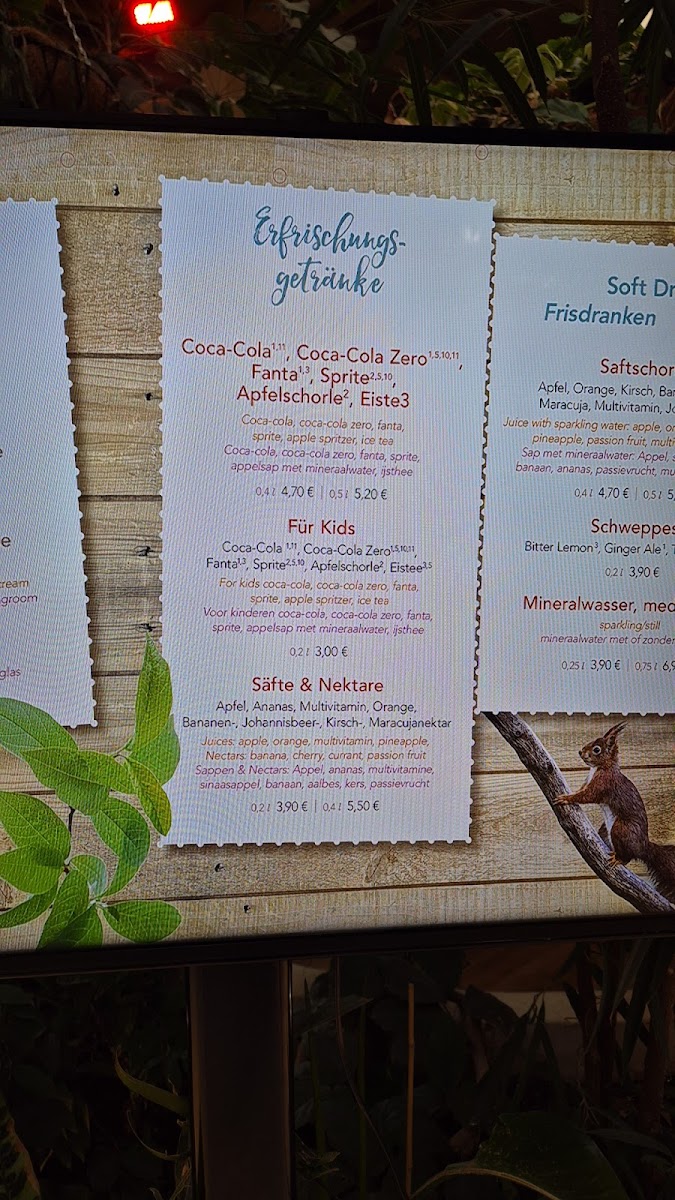 e
e
cream
groom
glas
Erfrischungs-
getränke
Coca-Cola¹,¹¹, Coca-Cola Zero¹,⁵,¹⁰,¹¹,
Fanta¹,³, Sprite²,⁵,¹⁰,
Apfelschorle², Eiste3
Coca-cola, coca-cola zero, fanta,
sprite, apple spritzer, ice tea
Coca-cola, coca-cola zero, fanta, sprite,
appelsap met mineraalwater, ijsthee
0,4 l 4,70 € | 0,5 l 5,20 €
Für Kids
Coca-Cola ¹,¹¹, Coca-Cola Zero¹,⁵,¹⁰,¹¹,
Fanta¹,³, Sprite²,⁵,¹⁰, Apfelschorle², Eistee³,⁵
For kids coca-cola, coca-cola zero, fanta,
sprite, apple spritzer, ice tea
Voor kinderen coca-cola, coca-cola zero, fanta,
sprite, appelsap met mineraalwater, ijsthee
0,2 l 3,00 €
Säfte & Nektare
Apfel, Ananas, Multivitamin, Orange,
Bananen-, Johannisbeer-, Kirsch-, Maracujanektar
Juices: apple, orange, multivitamin, pineapple,
Nectars: banana, cherry, currant, passion fruit
Sappen & Nectars: Appel, ananas, multivitamine,
sinaasappel, banaan, aalbes, kers, passievrucht
0,2 l 3,90 € | 0,4 l 5,50 €
Soft Dr
Frisdranken
Saftschor
Apfel, Orange, Kirsch, Ban
Maracuja, Multivitamin, Jo
Juice with sparkling water: apple, or
pineapple, passion fruit, multi
Sap met mineraalwater: Appel, s
banaan, ananas, passievrucht, mu
0,4 l 4,70 € | 0,5 l 5,
Schweppes
Bitter Lemon³, Ginger Ale¹, T
0,2 l 3,90 €
Mineralwasser, med
sparkling/still
mineraalwater met of zonder
0,25 l 3,90 € | 0,75 l 6,9